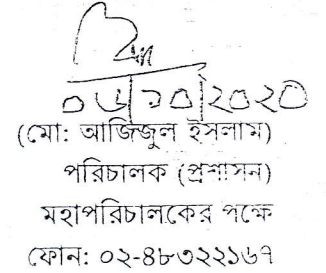 ০৬/১০/২০২০
(মো: আজিজুল ইসলাম)
পরিচালক (প্রশাসন)
মহাপরিচালকের পক্ষে
ফোন: ০২-৪৮৩২২১৬৭